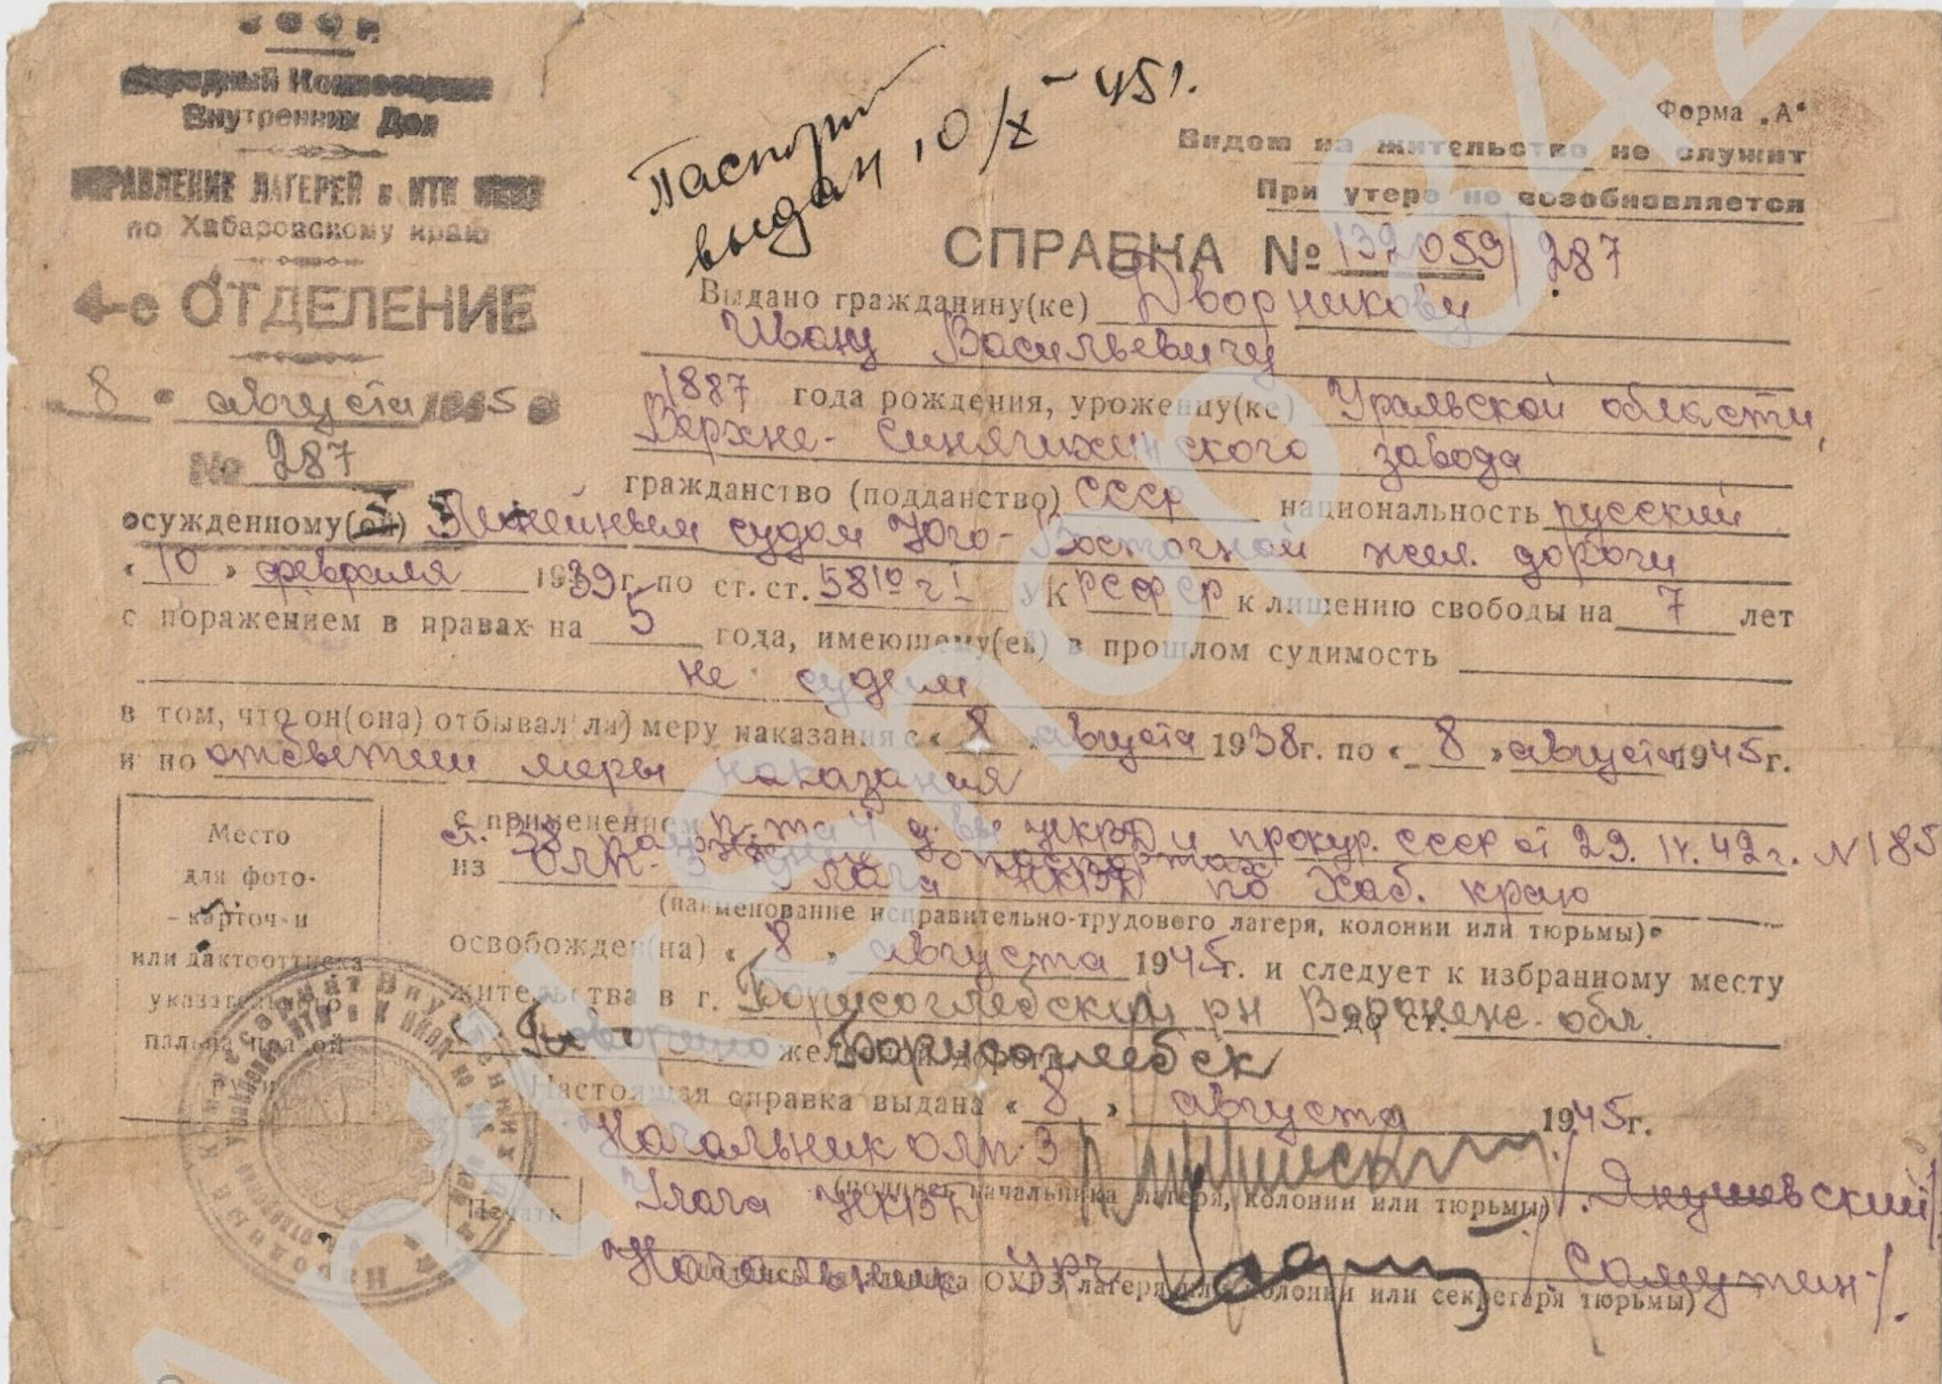 СССР
Народный Комиссариат
Внутренних Дел
УПРАВЛЕНИЕ ЛАГЕРЕЙ и ИТК НКВД
по Хабаровскому краю
4-е ОТДЕЛЕНИЕ
8 " августа 1945
№ 287
Паспорт
выдан 10/X - 45 г.
Форма „А“
Видом на жительство не служит
При утере не возобновляется
СПРАВКА № 132059/287
Выдано гражданину(ке) Дворникову
Ивану Васильевичу
1887 года рождения, уроженцу(ке) Уральской области,
Верхне-Синячихинского завода
гражданство (подданство) СССР национальность русский
осужденному(ой) Линейным судом Юго-Восточной жел. дороги
« 10 » февраля 1939 г. по ст. ст. 58 10 ч I УК РСФСР к лишению свободы на 7 лет
с поражением в правах на 5 года, имеющему(ей) в прошлом судимость
не судим
в том, что он(она) отбывал(ла) меру наказания с « 8 » августа 1938 г. по « 8 » августа 1945 г.
и по отбытии меры наказания
с применением дир. НКВД и прокур. СССР от 29. IV. 42 г. № 185
ст. 38 о паспортах
из ОЛП-3 Улага НКВД по Хаб. краю
(наименование исправительно-трудового лагеря, колонии или тюрьмы)
освобожден(на) « 8 » августа 1945 г. и следует к избранному месту
жительства в г. Борисоглебский рн Воронеж. обл. до ст.
железной дороги Борисоглебск
Настоящая справка выдана « 8 » августа 1945 г.
Начальник ОЛП-3
Улага НКВД /Якушевский/
(подпись начальника лагеря, колонии или тюрьмы)
Начальник УРЧ
подпись начальника ОУРЗ лагеря или колонии или секретаря тюрьмы)
Место
для фото-
карточки
или дактооттиска
указательного
пальца правой
руки
Печать